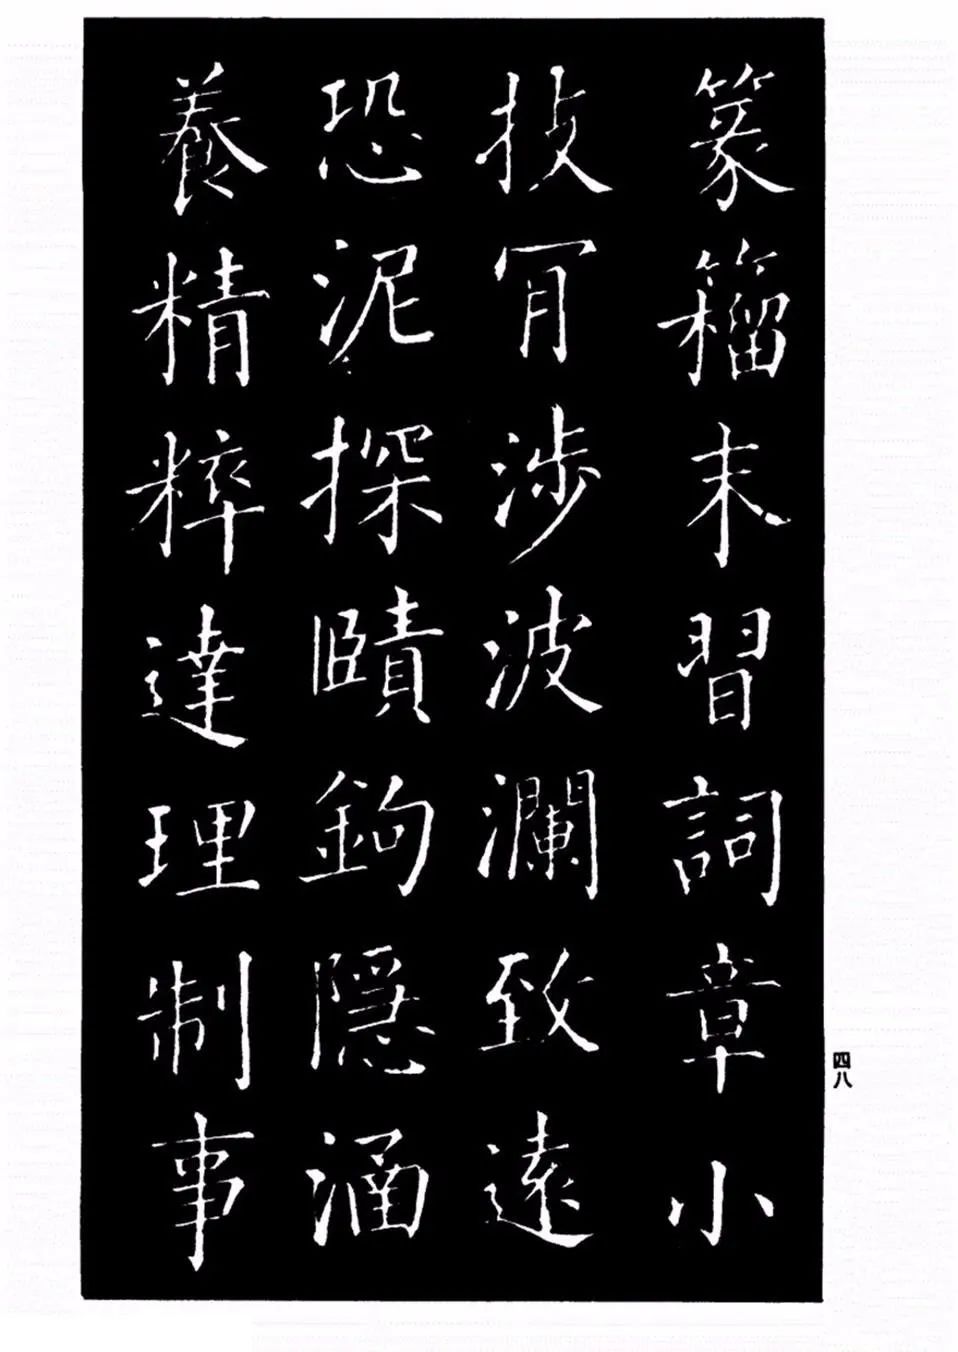 篆籕末習詞章小
技肎涉波瀾致遠
恐泥探賾鉤隱涵
養精粹達理制事
四八